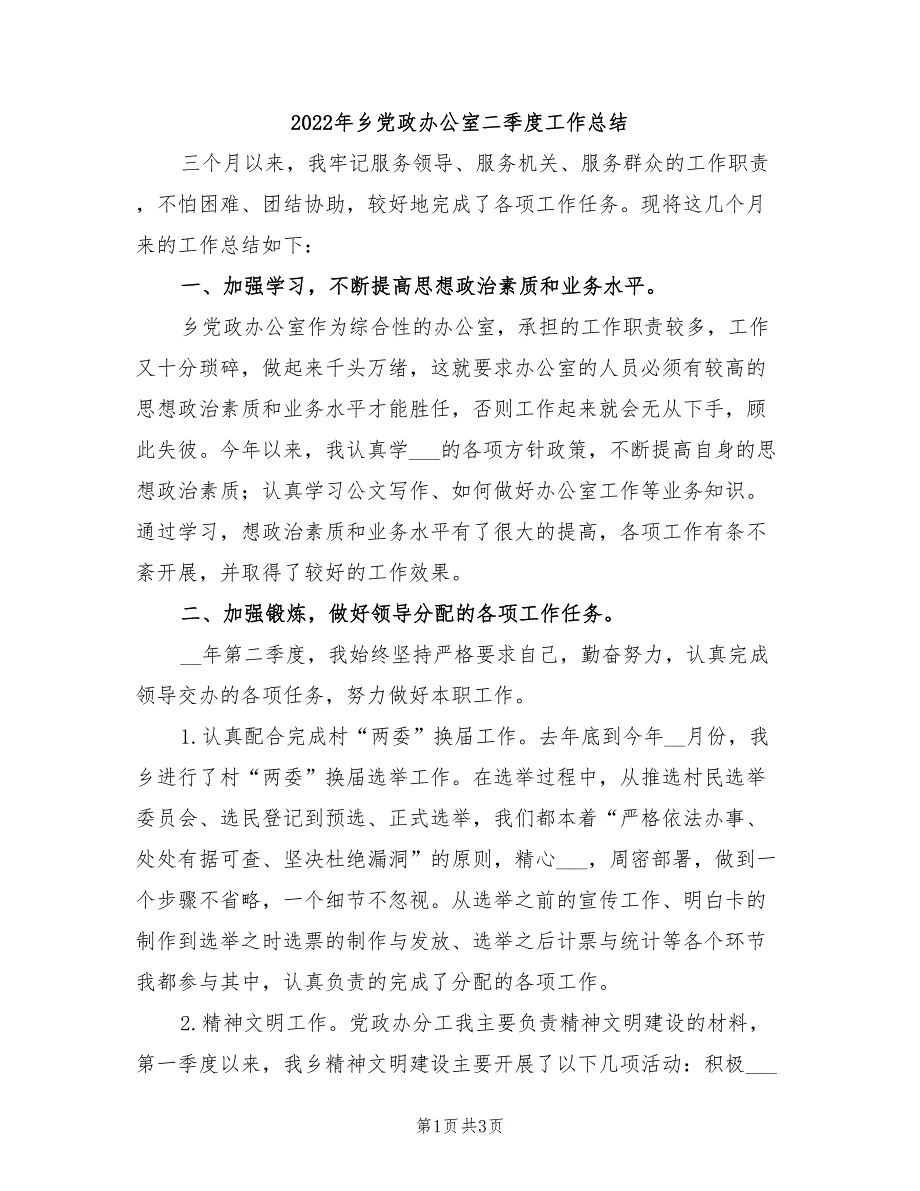 2022年乡党政办公室二季度工作总结
三个月以来，我牢记服务领导、服务机关、服务群众的工作职责
，不怕困难、团结协助，较好地完成了各项工作任务。现将这几个月
来的工作总结如下：
一、加强学习，不断提高思想政治素质和业务水平。
乡党政办公室作为综合性的办公室，承担的工作职责较多，工作
又十分琐碎，做起来千头万绪，这就要求办公室的人员必须有较高的
思想政治素质和业务水平才能胜任，否则工作起来就会无从下手，顾
此失彼。今年以来，我认真学___的各项方针政策，不断提高自身的思
想政治素质；认真学习公文写作、如何做好办公室工作等业务知识。
通过学习，想政治素质和业务水平有了很大的提高，各项工作有条不
紊开展，并取得了较好的工作效果。
二、加强锻炼，做好领导分配的各项工作任务。
__年第二季度，我始终坚持严格要求自己，勤奋努力，认真完成
领导交办的各项任务，努力做好本职工作。
1.认真配合完成村“两委”换届工作。去年底到今年__月份，我
乡进行了村“两委”换届选举工作。在选举过程中，从推选村民选举
委员会、选民登记到预选、正式选举，我们都本着“严格依法办事、
处处有据可查、坚决杜绝漏洞”的原则，精心___，周密部署，做到一
个步骤不省略，一个细节不忽视。从选举之前的宣传工作、明白卡的
制作到选举之时选票的制作与发放、选举之后计票与统计等各个环节
我都参与其中，认真负责的完成了分配的各项工作。
2.精神文明工作。党政办分工我主要负责精神文明建设的材料，
第一季度以来，我乡精神文明建设主要开展了以下几项活动：积极___
第1页共3页